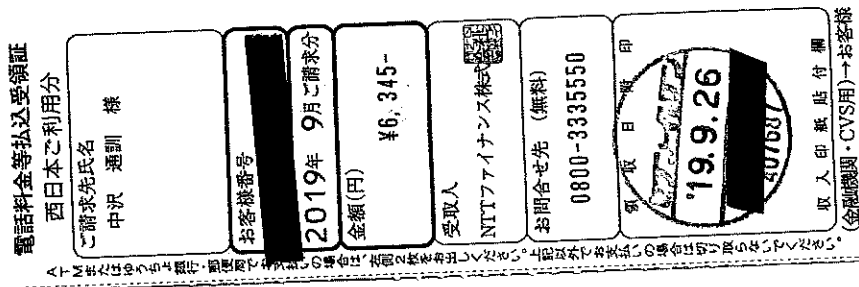 電話料金等払込受領証
西日本ご利用分
ご請求先氏名
中沢 通訓 様
お客様番号
2019年 9月ご請求分
金額(円)
¥6,345-
受取人
NTTファイナンス株式会社
お問合せ先 (無料)
0800-3335550
領収日附印
'19.9.26
407687
収入印紙貼付欄
(金融機関・CVS用)→お客様
ATMまたはゆうちょ銀行・郵便局でお支払いの場合は、左側2枚をお出しください。上記以外でお支払いの場合は切り取らないでください。